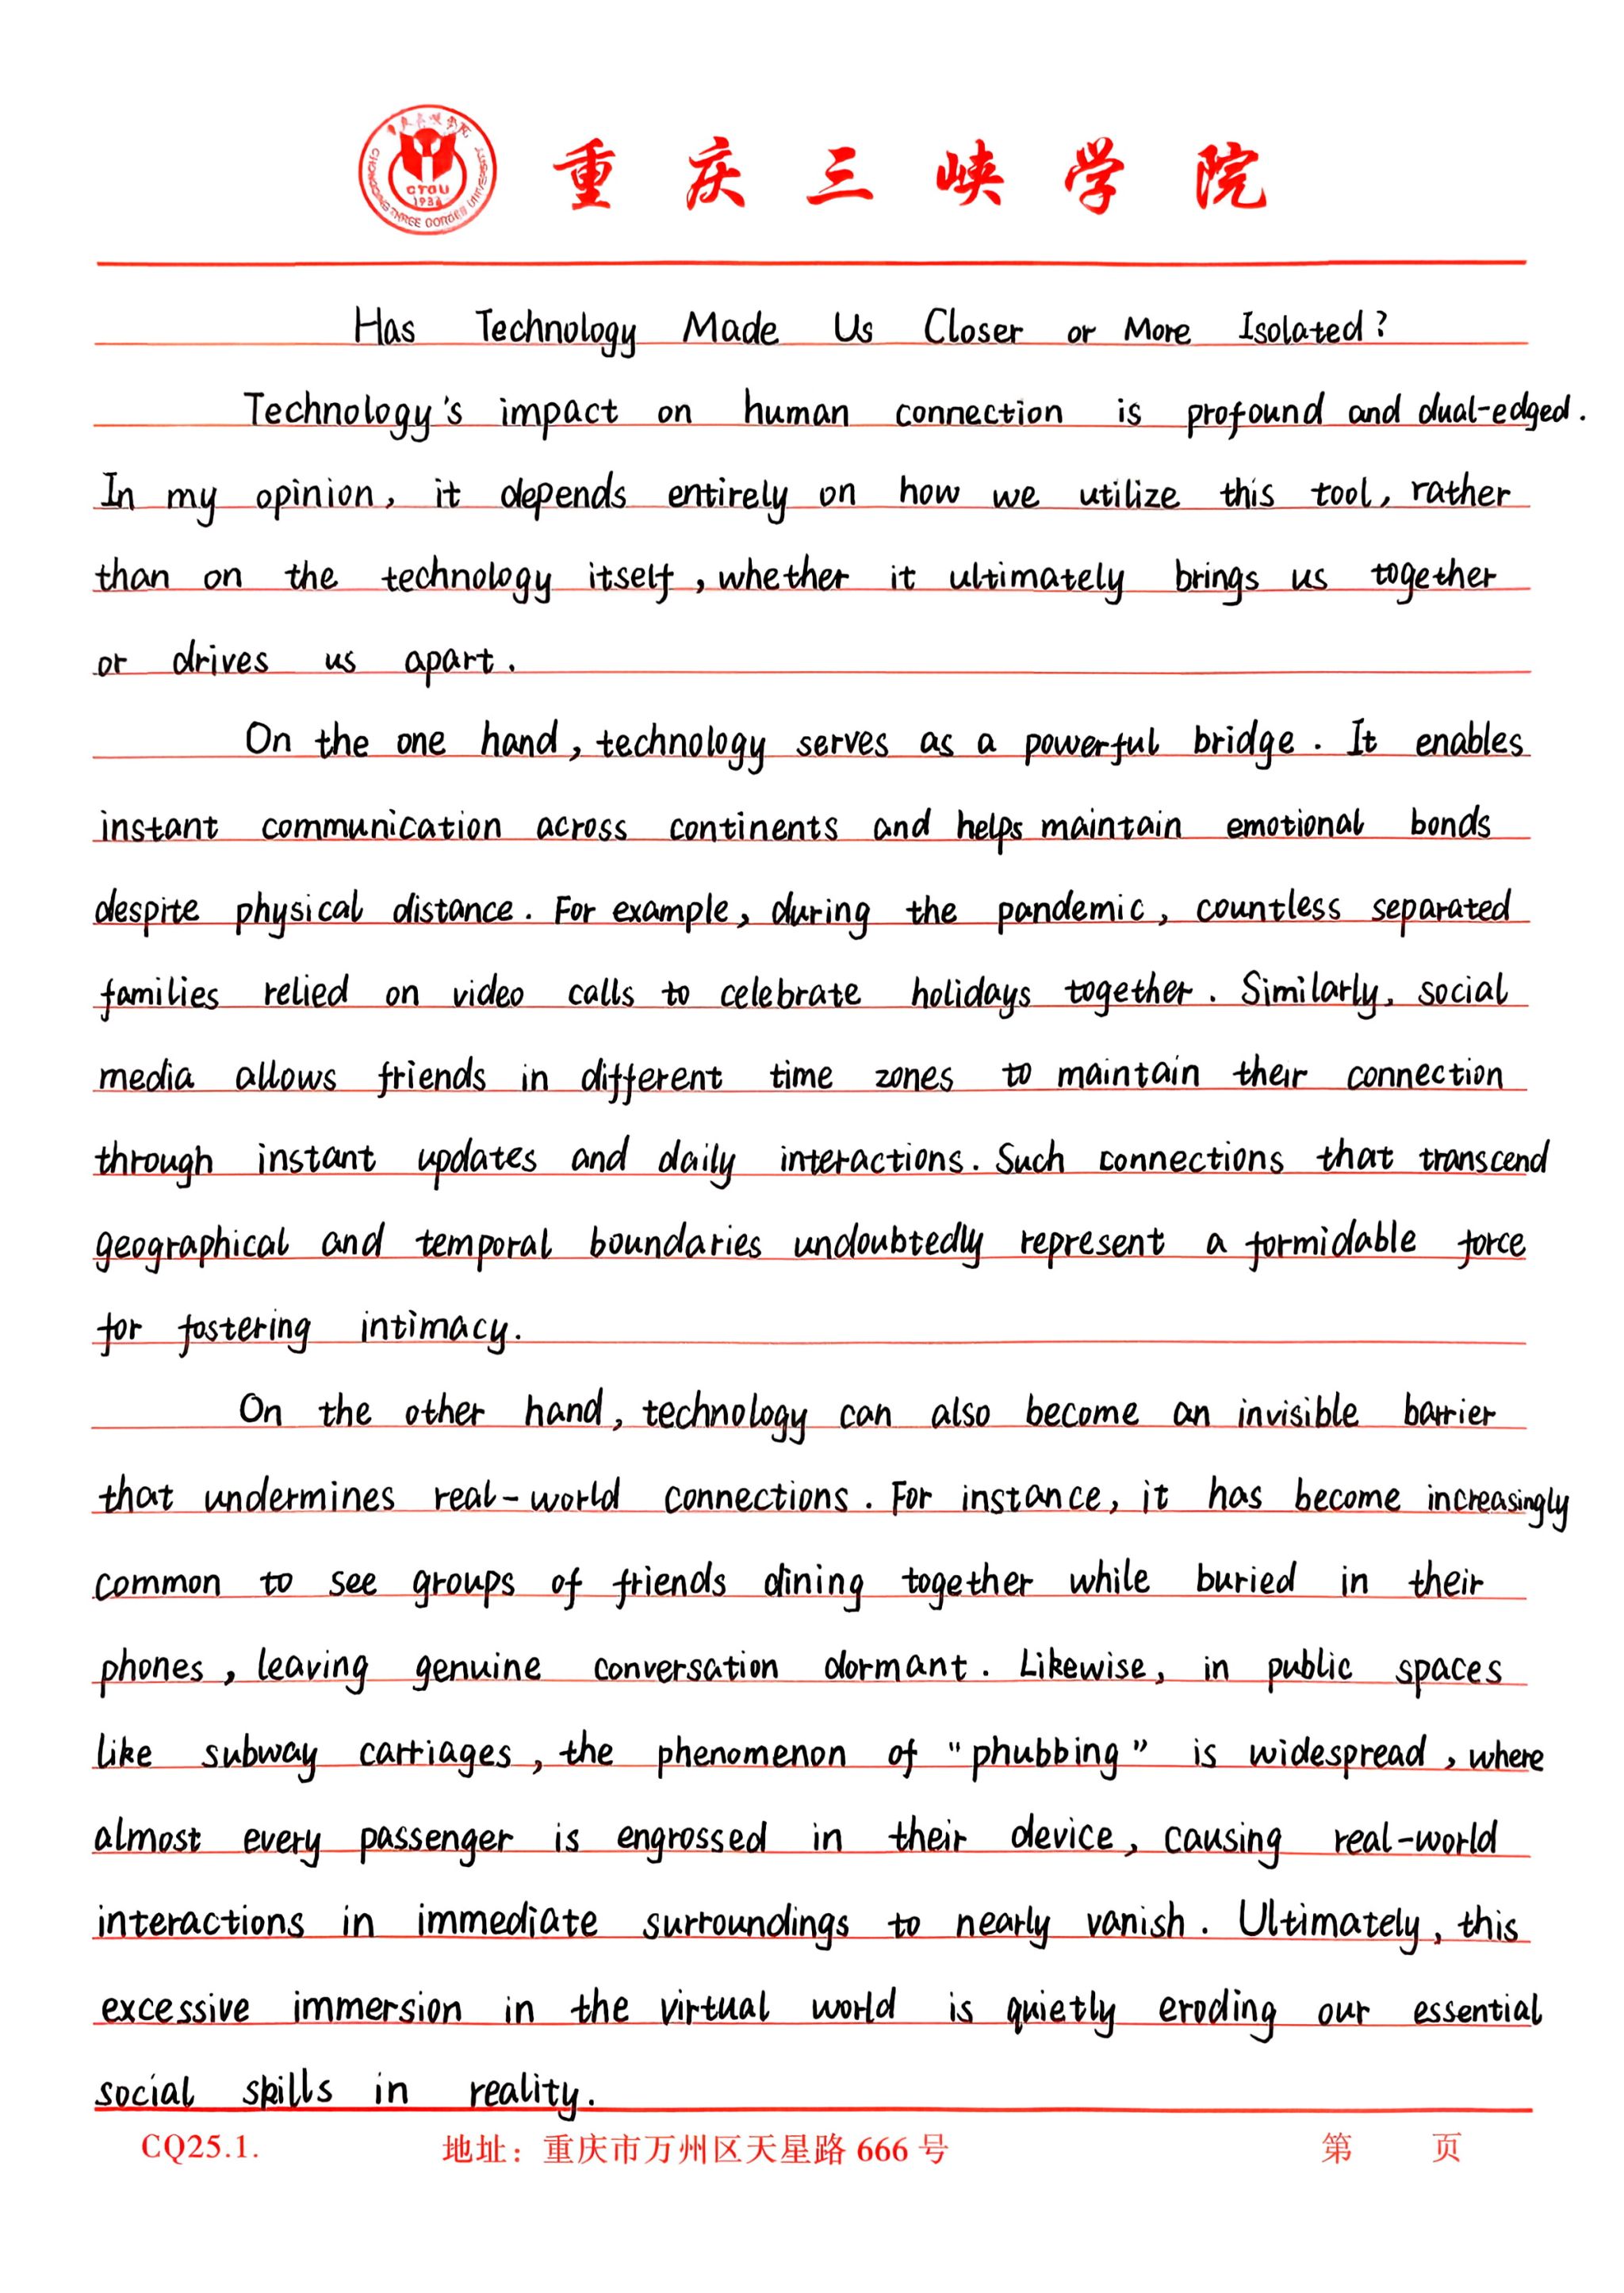 重庆三峡学院
CHONGQING THREE GORGES UNIVERSITY
CTGU
Has Technology Made Us Closer or More Isolated?
Technology's impact on human connection is profound and dual-edged.
In my opinion, it depends entirely on how we utilize this tool, rather
than on the technology itself, whether it ultimately brings us together
or drives us apart.
On the one hand, technology serves as a powerful bridge. It enables
instant communication across continents and helps maintain emotional bonds
despite physical distance. For example, during the pandemic, countless separated
families relied on video calls to celebrate holidays together. Similarly, social
media allows friends in different time zones to maintain their connection
through instant updates and daily interactions. Such connections that transcend
geographical and temporal boundaries undoubtedly represent a formidable force
for fostering intimacy.
On the other hand, technology can also become an invisible barrier
that undermines real-world connections. For instance, it has become increasingly
common to see groups of friends dining together while buried in their
phones, leaving genuine conversation dormant. Likewise, in public spaces
like subway carriages, the phenomenon of "phubbing" is widespread, where
almost every passenger is engrossed in their device, causing real-world
interactions in immediate surroundings to nearly vanish. Ultimately, this
excessive immersion in the virtual world is quietly eroding our essential
social skills in reality.
CQ25.1. 地址：重庆市万州区天星路 666 号 第 页